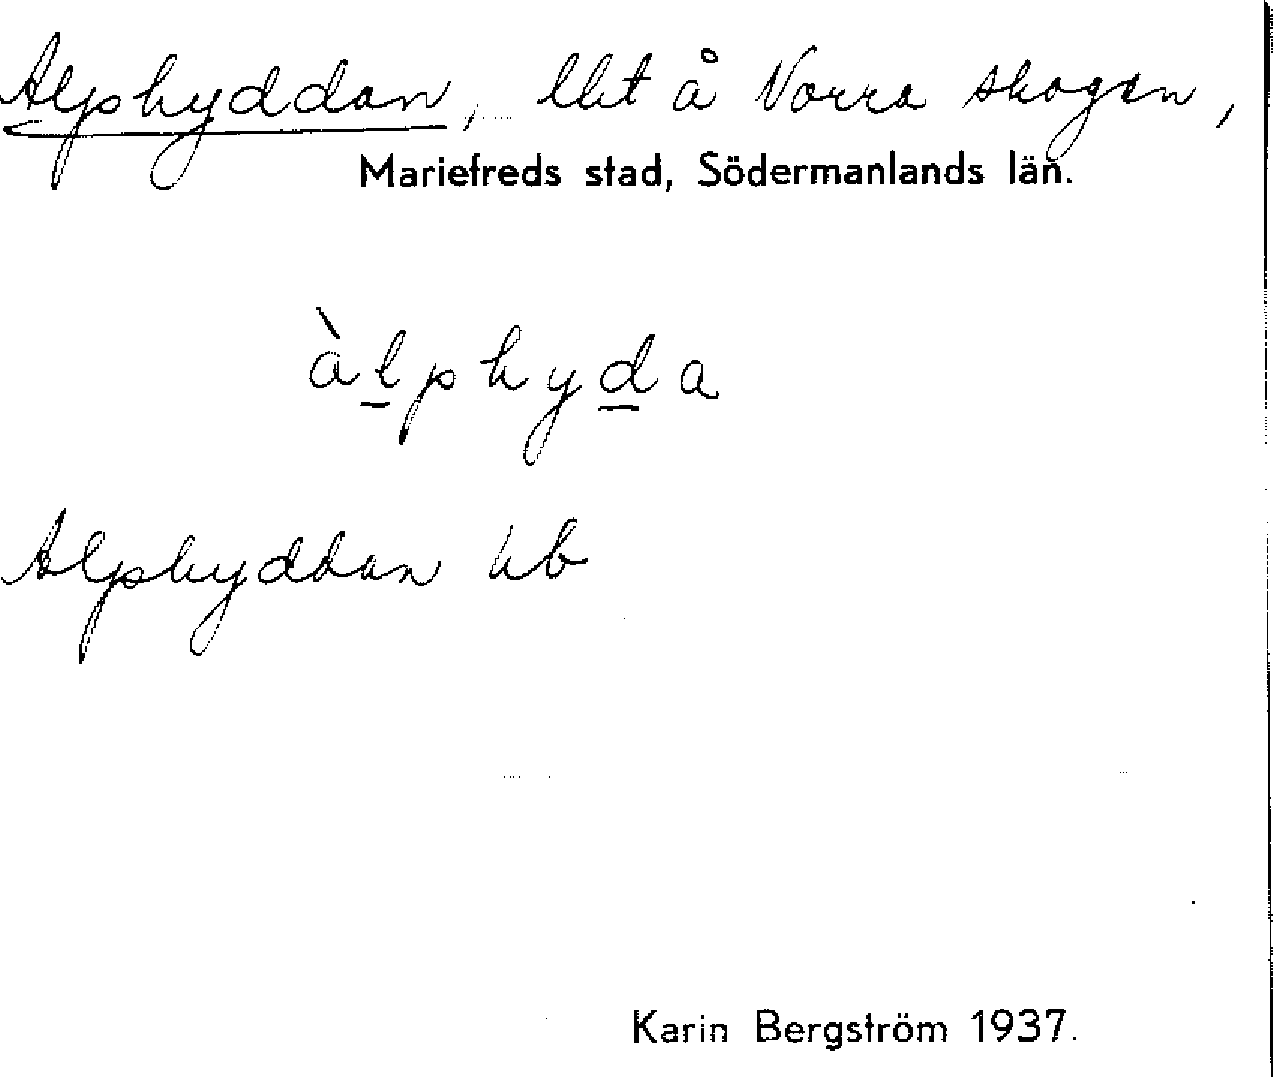 Alphyddan, llt å Norra skogen,
Mariefreds stad, Södermanlands län.
àlphyda
Alphyddan hb
Karin Bergström 1937.